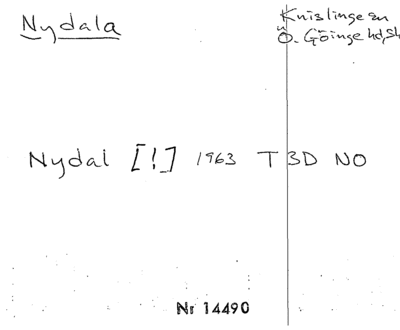 Nydala
Knislinge sn
Ö. Göinge hd, Sk
Nydal [!] 1963 T 3D NO
Nr 14490